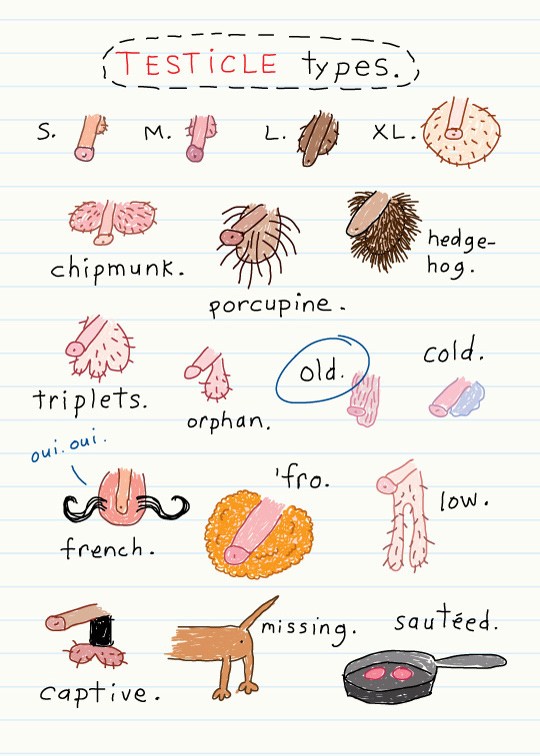 TESTICLE types.
S. M. L. XL.
chipmunk.
porcupine.
hedge-
hog.
triplets.
orphan.
old.
cold.
oui. oui.
french.
'fro.
low.
captive.
missing.
sautéed.